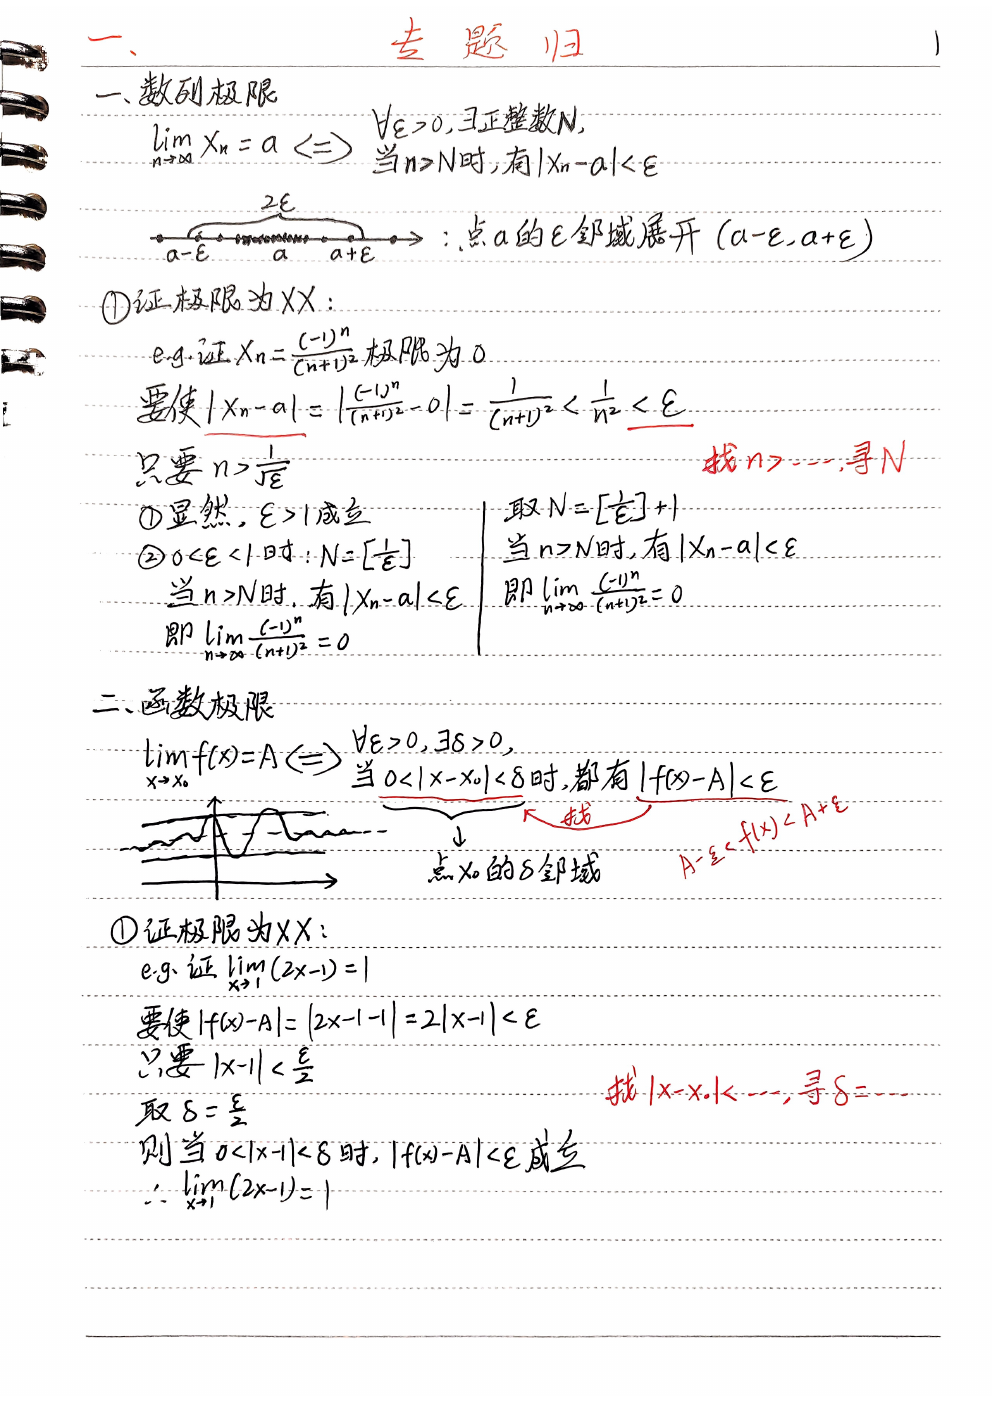 一、 专题归 1
一、数列极限
lim n→∞ Xn = a <=> ∀ε>0,∃正整数N,
当n>N时,有|Xn-a|<ε
2ε
a-ε a a+ε :点a的ε邻域展开 (a-ε,a+ε)
①证极限为XX:
e.g.证 Xn = (-1)ⁿ/(n+1)² 极限为0
要使|Xn-a| = |(-1)ⁿ/(n+1)² - 0| = 1/(n+1)² < 1/n² < ε
只要 n > 1/√ε
找n>----,寻N
①显然,ε>1成立
②0<ε<1时:N=[1/ε]
当n>N时,有|Xn-a|<ε
即 lim n→∞ (-1)ⁿ/(n+1)² = 0
取N=[1/ε]+1
当n>N时,有|Xn-a|<ε
即 lim n→∞ (-1)ⁿ/(n+1)² = 0
二、函数极限
lim x→x₀ f(x)=A <=> ∀ε>0,∃δ>0,
当 0<|x-x₀|<δ时,都有|f(x)-A|<ε
找
A-ε<f(x)<A+ε
点x₀的δ邻域
①证极限为XX:
e.g. 证 lim x→1 (2x-1)=1
要使|f(x)-A|=|2x-1-1|=2|x-1|<ε
只要 |x-1|<ε/2
找|x-x₀|<----,寻δ=----
取 δ=ε/2
则当 0<|x-1|<δ时,|f(x)-A|<ε成立
∴ lim x→1 (2x-1)=1